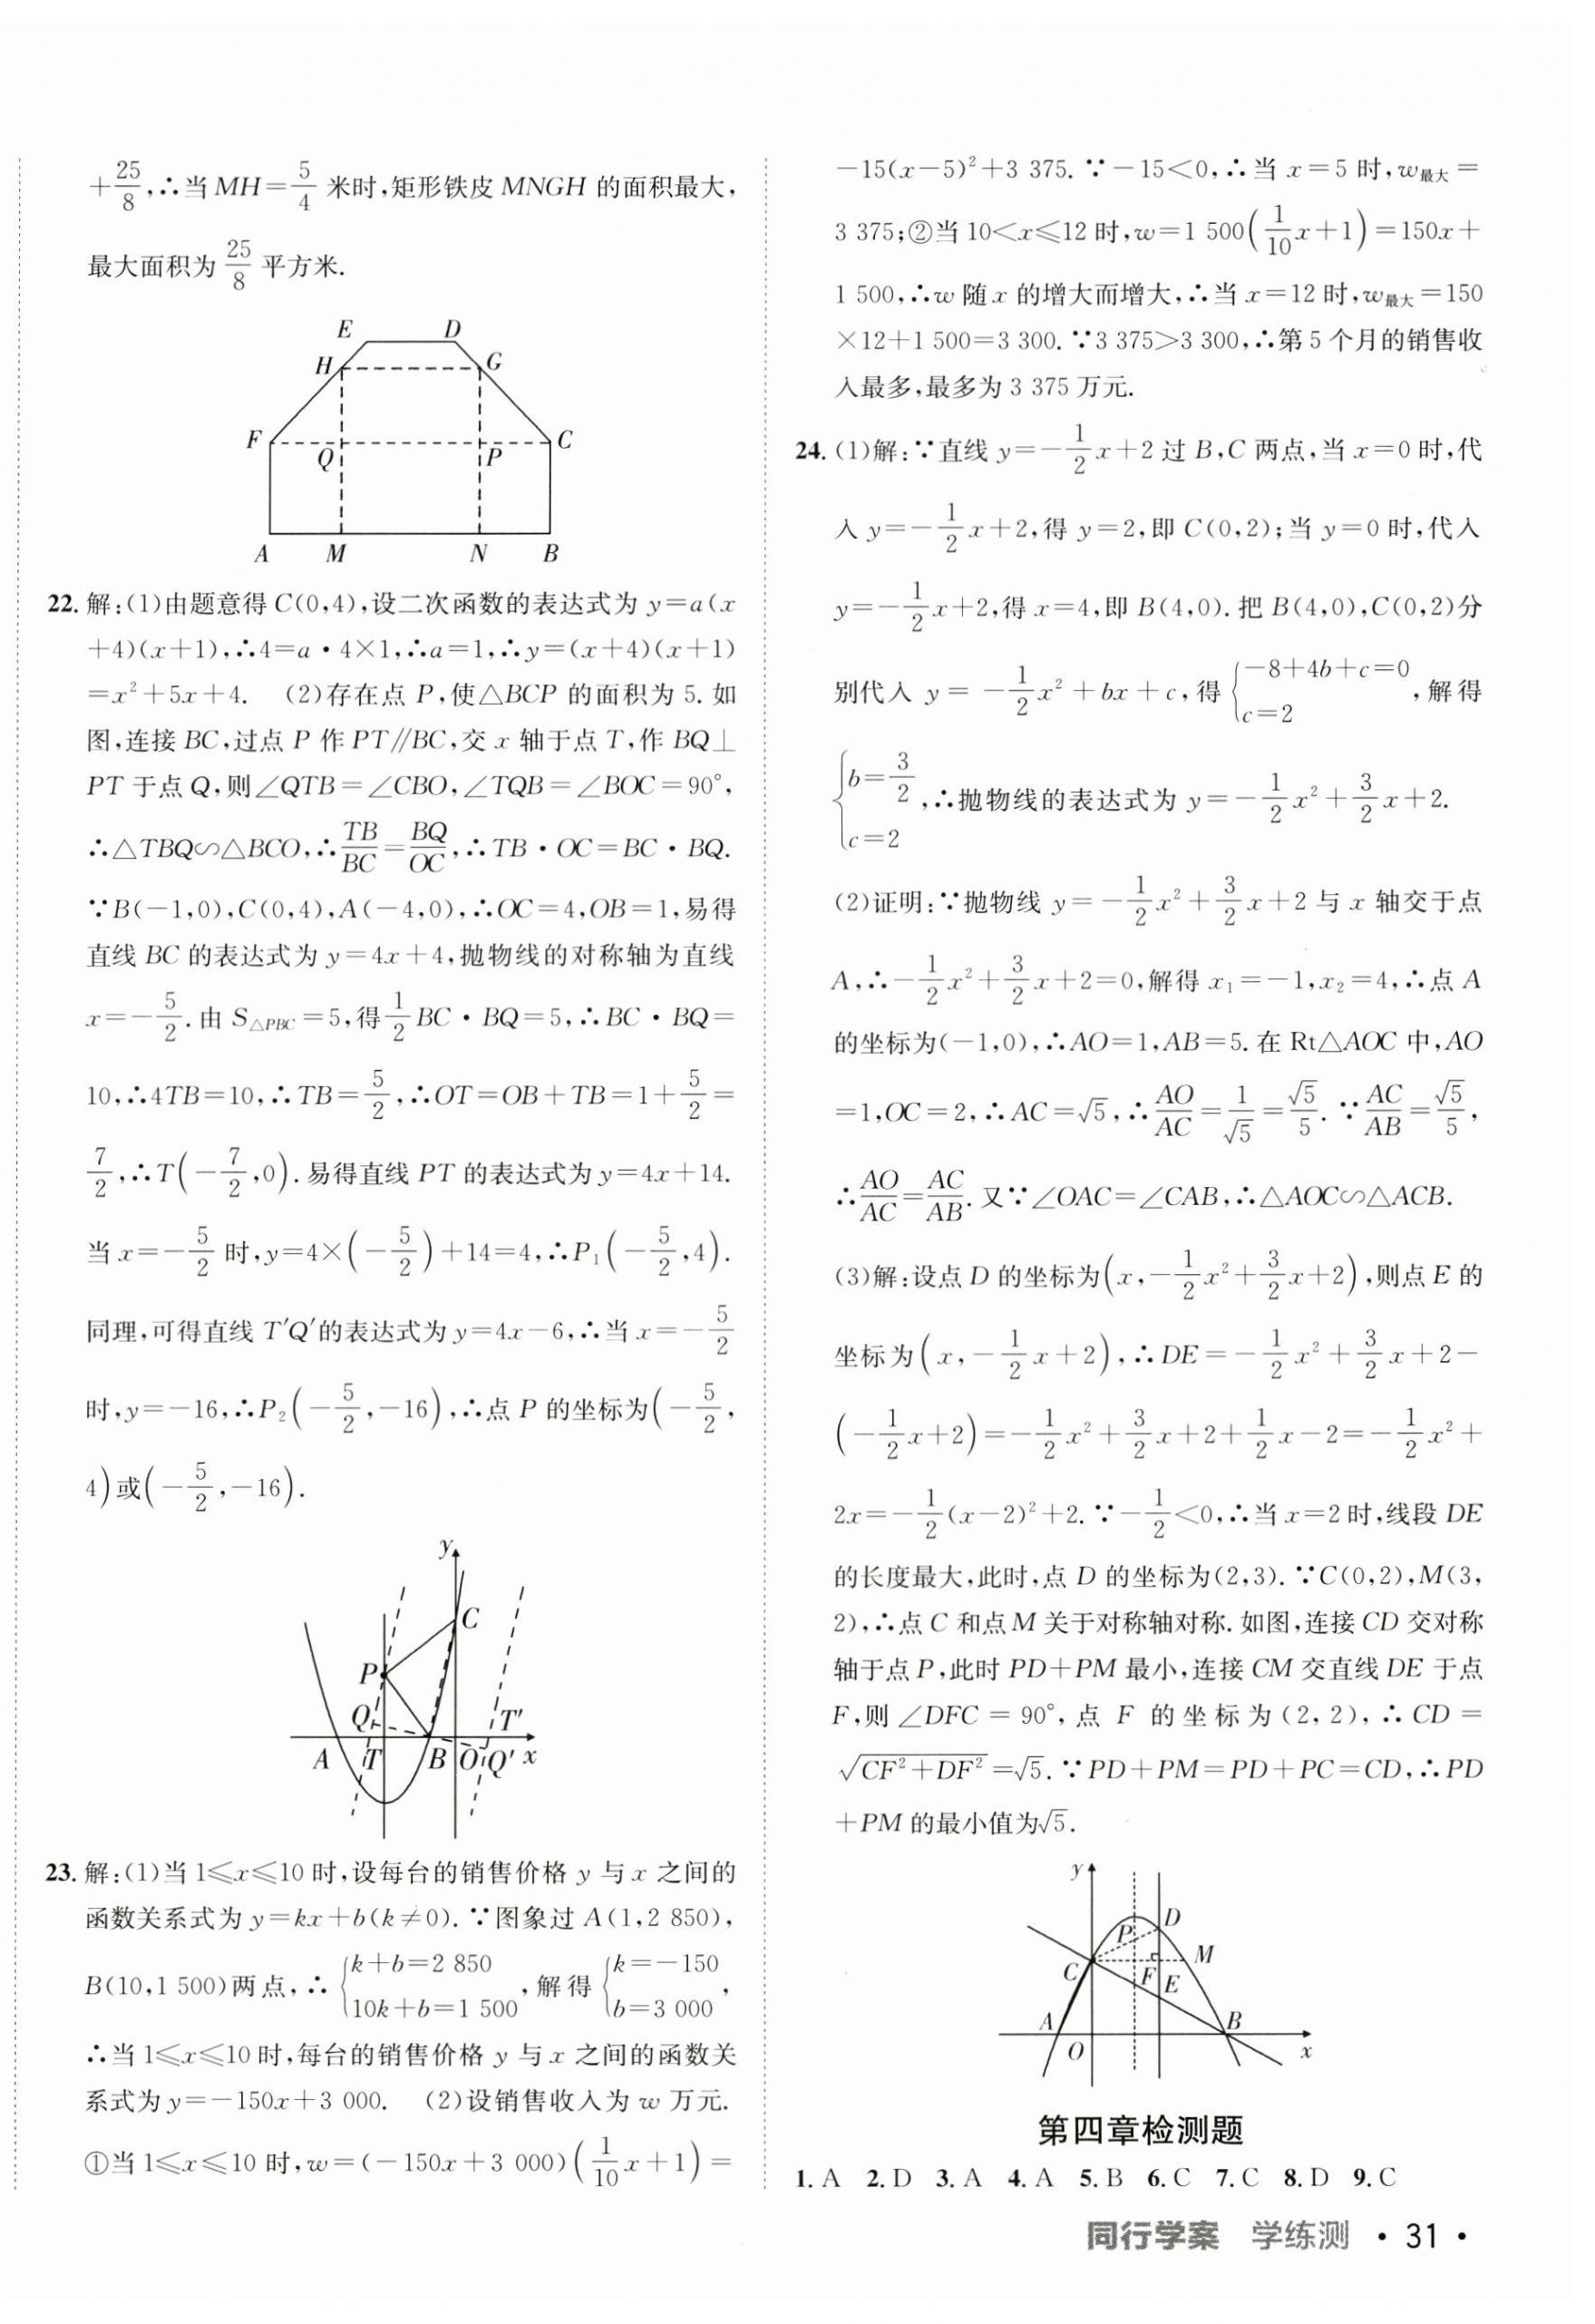 +25/8,∴当MH=5/4 米时,矩形铁皮MNGH 的面积最大,
最大面积为 25/8 平方米.
E D
H G
F C
Q P
A M N B
22. 解:(1)由题意得C(0,4),设二次函数的表达式为 y=a(x
+4)(x+1),∴4=a·4×1,∴a=1,∴y=(x+4)(x+1)
=x²+5x+4. (2)存在点 P,使△BCP 的面积为 5. 如
图,连接 BC,过点 P 作 PT∥BC,交 x 轴于点 T,作 BQ⊥
PT 于点 Q,则∠QTB=∠CBO,∠TQB=∠BOC=90°,
∴△TBQ∽△BCO,∴TB/BC=BQ/OC,∴TB·OC=BC·BQ.
∵B(-1,0),C(0,4),A(-4,0),∴OC=4,OB=1,易得
直线 BC 的表达式为 y=4x+4,抛物线的对称轴为直线
x=-5/2. 由 S△PBC=5,得1/2BC·BQ=5,∴BC·BQ=
10,∴4TB=10,∴TB=5/2,∴OT=OB+TB=1+5/2=
7/2,∴T(-7/2,0). 易得直线 PT 的表达式为 y=4x+14.
当 x=-5/2 时,y=4×(-5/2)+14=4,∴P₁(-5/2,4).
同理,可得直线 T′Q′的表达式为 y=4x-6,∴当 x=-5/2
时,y=-16,∴P₂(-5/2,-16),∴点 P 的坐标为(-5/2,
4)或(-5/2,-16).
y
C
P
Q T′
A T B O Q′ x
23. 解:(1)当 1≤x≤10 时,设每台的销售价格 y 与 x 之间的
函数关系式为 y=kx+b(k≠0). ∵图象过 A(1,2 850),
B(10,1 500)两点,∴{k+b=2 850 10k+b=1 500,解得{k=-150 b=3 000,
∴当 1≤x≤10 时,每台的销售价格 y 与 x 之间的函数关
系式为 y=-150x+3 000. (2)设销售收入为 w 万元.
①当 1≤x≤10 时,w=(-150x+3 000)(1/10x+1)=
-15(x-5)²+3 375. ∵-15<0,∴当 x=5 时,w最大=
3 375;②当 10<x≤12 时,w=1 500(1/10x+1)=150x+
1 500,∴w 随 x 的增大而增大,∴当 x=12 时,w最大=150
×12+1 500=3 300. ∵3 375>3 300,∴第 5 个月的销售收
入最多,最多为 3 375 万元.
24. (1)解:∵直线 y=-1/2x+2 过 B,C 两点,当 x=0 时,代
入 y=-1/2x+2,得 y=2,即 C(0,2);当 y=0 时,代入
y=-1/2x+2,得 x=4,即 B(4,0). 把 B(4,0),C(0,2)分
别代入 y=-1/2x²+bx+c,得{-8+4b+c=0 c=2,解得
{b=3/2 c=2,∴抛物线的表达式为 y=-1/2x²+3/2x+2.
(2)证明:∵抛物线 y=-1/2x²+3/2x+2 与 x 轴交于点
A,∴-1/2x²+3/2x+2=0,解得 x₁=-1,x₂=4,∴点 A
的坐标为(-1,0),∴AO=1,AB=5. 在 Rt△AOC 中,AO
=1,OC=2,∴AC=√5,∴AO/AC=1/√5=√5/5. ∵AC/AB=√5/5,
∴AO/AC=AC/AB. 又∵∠OAC=∠CAB,∴△AOC∽△ACB.
(3)解:设点 D 的坐标为(x,-1/2x²+3/2x+2),则点 E 的
坐标为(x,-1/2x+2),∴DE=-1/2x²+3/2x+2-
(-1/2x+2)=-1/2x²+3/2x+2+1/2x-2=-1/2x²+
2x=-1/2(x-2)²+2. ∵-1/2<0,∴当 x=2 时,线段 DE
的长度最大,此时,点 D 的坐标为(2,3). ∵C(0,2),M(3,
2),∴点 C 和点 M 关于对称轴对称. 如图,连接 CD 交对称
轴于点 P,此时 PD+PM 最小,连接 CM 交直线 DE 于点
F,则∠DFC=90°,点 F 的坐标为(2,2),∴CD=
√(CF²+DF²)=√5. ∵PD+PM=PD+PC=CD,∴PD
+PM 的最小值为√5.
y
P D
M
C F E
A B
O x
第四章检测题
1. A 2. D 3. A 4. A 5. B 6. C 7. C 8. D 9. C
同行学案 学练测 · 31 ·